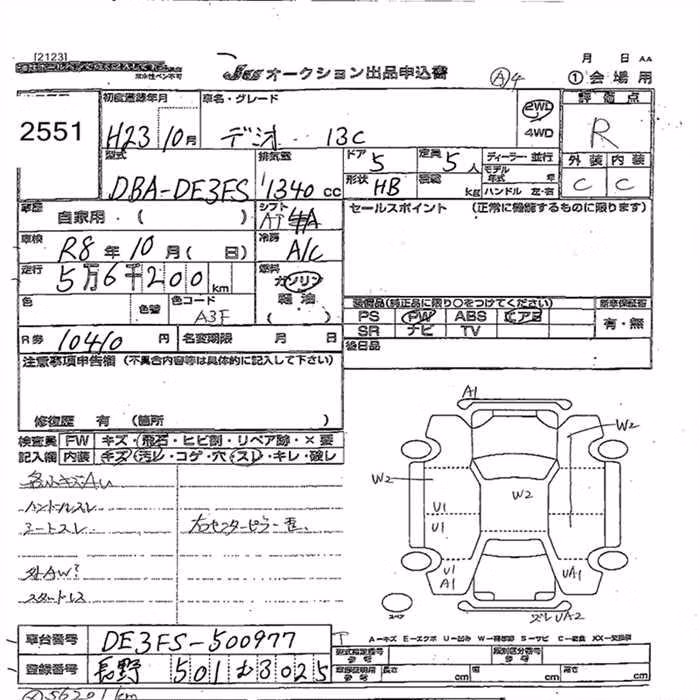 [2123]
月 日 AA
JU オークション出品申込書
A4
①会場用
2551
初度登録年月 車名・グレード
2WD 4WD
評価点
H23 10月 デミオ 13C
R
型式 排気量 ドア 5 定員 5人 ディーラー・並行
外装 内装
DBA-DE3FS 1340 cc 形状 HB 積載 kg モデル年式 年
ハンドル 左・右
C C
車歴 自家用 ( ) シフト AT
セールスポイント (正常に機能するものに限ります)
車検 R8年 10月( 日) 冷房 A/C
走行 5万6千200 km 燃料 ガソリン
軽油
( )
色 色替 色コード A3F
装備品(純正品に限り○をつけてください) 新車保証書
PS PW ABS エアB 有・無
SR ナビ TV
R券 10410 円 名変期限 月 日
後日品
注意事項申告欄 (不具合内容等は具体的に記入して下さい)
修復歴 有 (箇所 )
検査員 FW キズ・飛石・ヒビ割・リペア跡・×要
記入欄 内装 キズ・汚レ・コゲ・穴・スレ・キレ・破レ
ハンドルスレ
シートスレ
右センターピラー
社外AW
スタッドレス
A1
W2
W2
W2
U1
U1
U1
A1
UA1
スペア
ズレ UA2
A－キズ E－エクボ U－凹み W－補修跡 S－サビ C－腐食 XX－交換済
車台番号 DE3FS-500977
登録番号 長野 501 む 3025
型式指定番号 類別区分番号
長さ cm 幅 cm 高さ cm
56201km